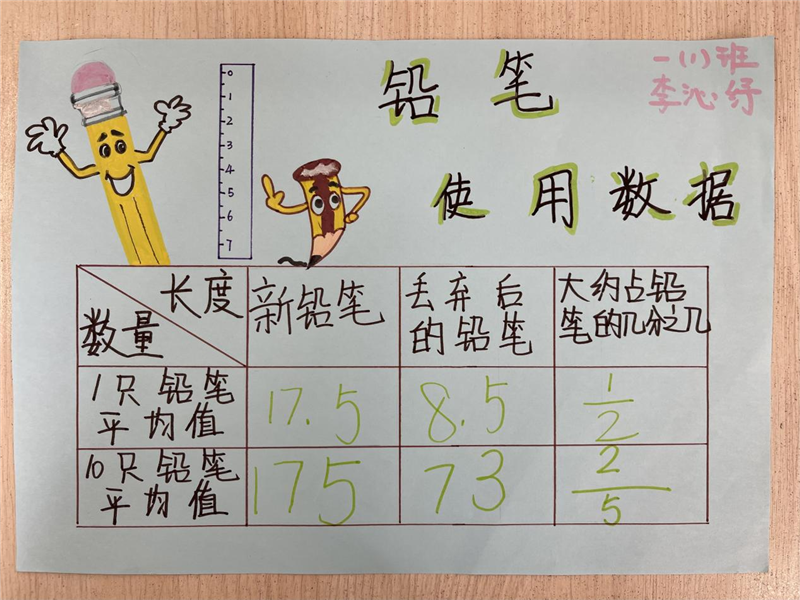 一(1)班
李沁纾
铅笔
使用数据
0
1
2
3
4
5
6
7
长度
数量
新铅笔
丢弃后
的铅笔
大约占铅
笔的几分之几
1只铅笔
平均值
17.5
8.5
1/2
10只铅笔
平均值
175
73
2/5